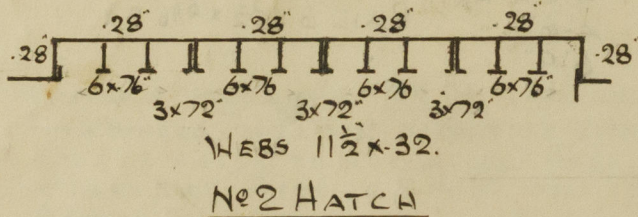 .28" .28" .28" .28"
.28" .28"
6x76" 6x76" 6x76 6x76"
3x72" 3x72" 3x72"
WEBS 11½ x .32.
No 2 HATCH